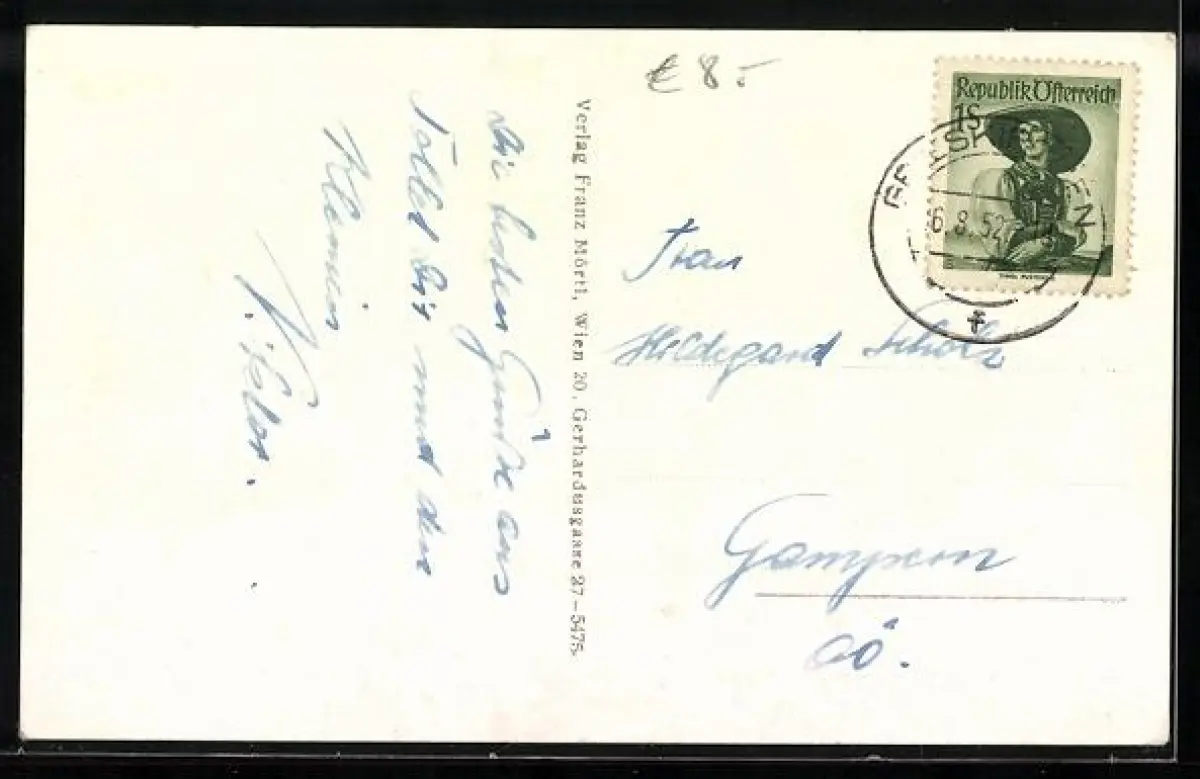 € 8.-
Republik Österreich
1S
6.8.52
Verlag Franz Mörtl, Wien 20, Gerhardusgasse 27-5475.
Die besten Grüße aus
Dir und den
Kleinen
Frau
Hildegard Scholz
Gampern
OÖ.